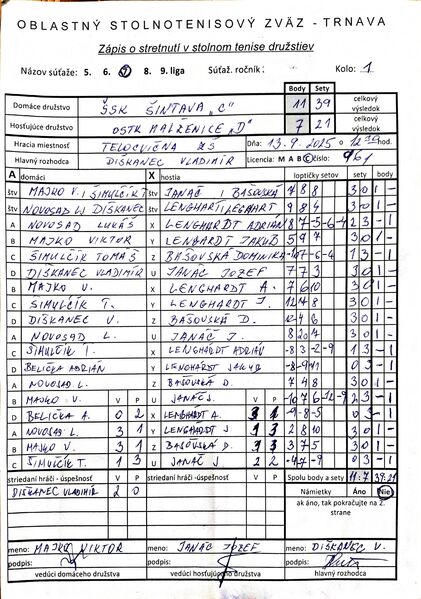 OBLASTNÝ STOLNOTENISOVÝ ZVÄZ - TRNAVA
Zápis o stretnutí v stolnom tenise družstiev
Názov súťaže: 5. 6. 7. 8. 9. liga Súťaž. ročník: Kolo: 1
Body Sety
Domáce družstvo ŠSK ŠINTAVA „C" 11 39 celkový výsledok
Hosťujúce družstvo OSTK MALŽENICE „D" 7 21 celkový výsledok
Hracia miestnosť TELOCVIČŇA ZŠ Dňa: 13.9.2025 o hod.
Hlavný rozhodca DIŠKANEC VLADIMÍR Licencia: M A B C číslo: 961
A domáci X hostia loptičky setov sety body
štv MAJKO V. ŠIMULČÍK T. štv JANÁČ BAŠOVSKÁ 7 8 8 3 0 1 -
štv NOVOSAD L. DIŠKANEC štv LENGHART LENGHART 9 8 4 3 0 1 -
A NOVOSAD LUKÁŠ X LENGHARDT ADRIÁN 8 -7 -5 -6 -4
B MAJKO VIKTOR Y LENGARDT JAKUB 5 9 7 3 0 1 -
C ŠIMULČÍK TOMÁŠ Z BAŠOVSKÁ DOMINIKA 1 3 - 1
D DIŠKANEC VLADIMÍR U JANÁČ JOZEF 7 7 3 3 0 1 -
B MAJKO V. X LENGHARDT A. 7 6 10 3 0 1 -
C ŠIMULČÍK T. Y LENGHARDT J. 3 0 1 -
D DIŠKANEC V. Z BAŠOVSKÁ D. 3 0 1 -
A NOVOSAD L. U JANÁČ J. 3 0 1 -
C ŠIMULČÍK T. X LENGHARDT ADRIÁN -8 3 -2 -9 1 3 - 1
D BELIČKA ADRIÁN Y LENGHARDT JAKUB 0 3 - 1
A NOVOSAD L. Z BAŠOVSKÁ D. 7 4 8 3 0 1 -
B MAJKO V. V P U JANÁČ J. V P -10 7 6 -12 -9 2 3 - 1
D BELIČKA A. 0 2 X LENGHARDT A. 3 1 -9 -8 -5 0 3 - 1
A NOVOSAD L. 3 1 Y LENGHARDT J 1 3 2 8 10 3 0 1 -
B MAJKO V. 3 1 Z BAŠOVSKÁ D. 1 3 3 7 5 3 0 1 -
C ŠIMULČÍK T. 1 3 U JANÁČ J 2 2 -4 -7 -9 0 3 - 1
striedaní hráči - úspešnosť V P striedaní hráči - úspešnosť V P Spolu body a sety 11:7 39:21
DIŠKANEC VLADIMÍR 2 0 Námietky Áno Nie
ak áno, tak pokračujte na 2. strane
meno: MAJKO VIKTOR meno: JANÁČ JOZEF meno: DIŠKANEC V.
podpis: podpis: podpis:
vedúci domáceho družstva vedúci hosťujúceho družstva hlavný rozhodca